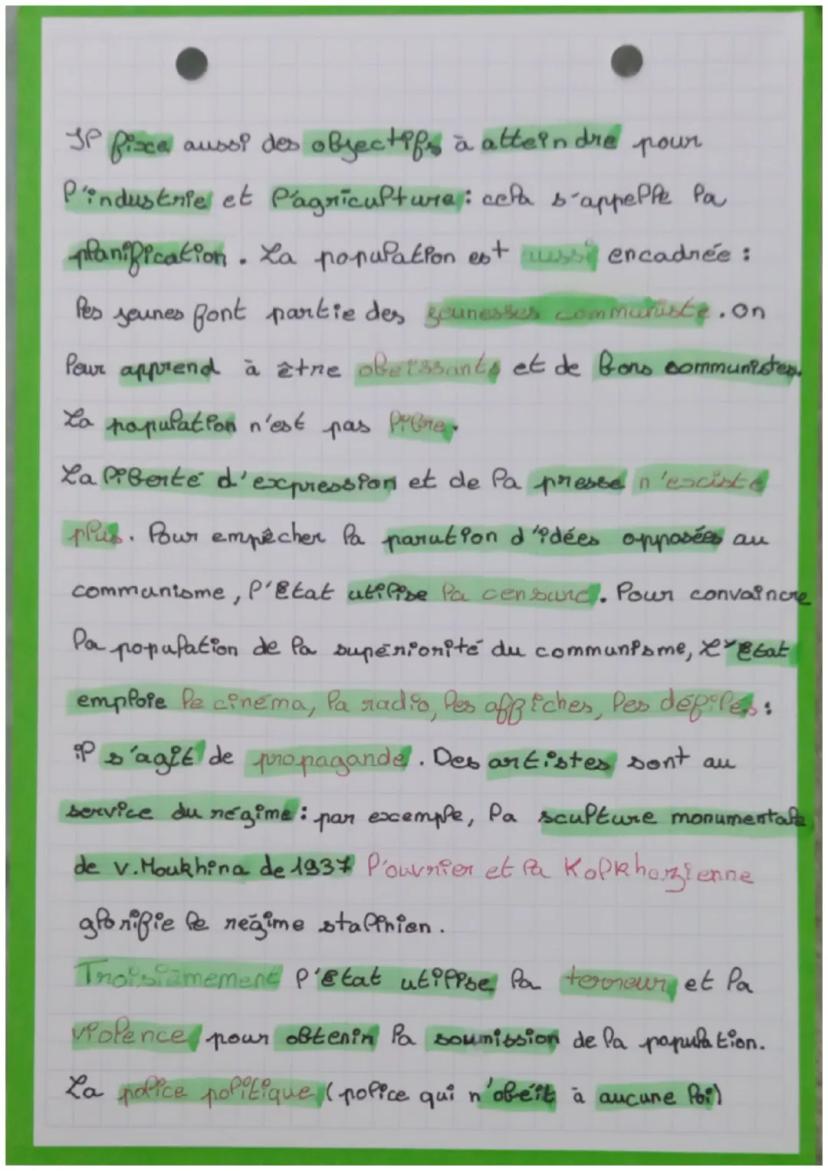 Il fixe aussi des objectifs à atteindre pour
l'industrie et l'agriculture : cela s'appelle la
planification. La population est aussi encadrée :
les jeunes font partie des jeunesses communiste. on
leur apprend à être obeissants et de bons communistes.
La population n'est pas libre.
La liberté d'expression et de la presse n'existe
plus. Pour empêcher la parution d'idées opposées au
communisme, l'Etat utilise la censure. Pour convaincre
la population de la supériorité du communisme, L'Etat
emploie le cinéma, la radio, les affiches, les défilés :
il s'agit de propagande. Des artistes sont au
service du régime : par exemple, la sculture monumentale
de v.Moukhina de 1937 l'ouvrier et la Kolkhozienne
glorifie le régime stalinien.
Troisièmement l'Etat utilise la terreur et la
violence pour obtenir la soumission de la population.
La police politique (police qui n'obéit à aucune loi)